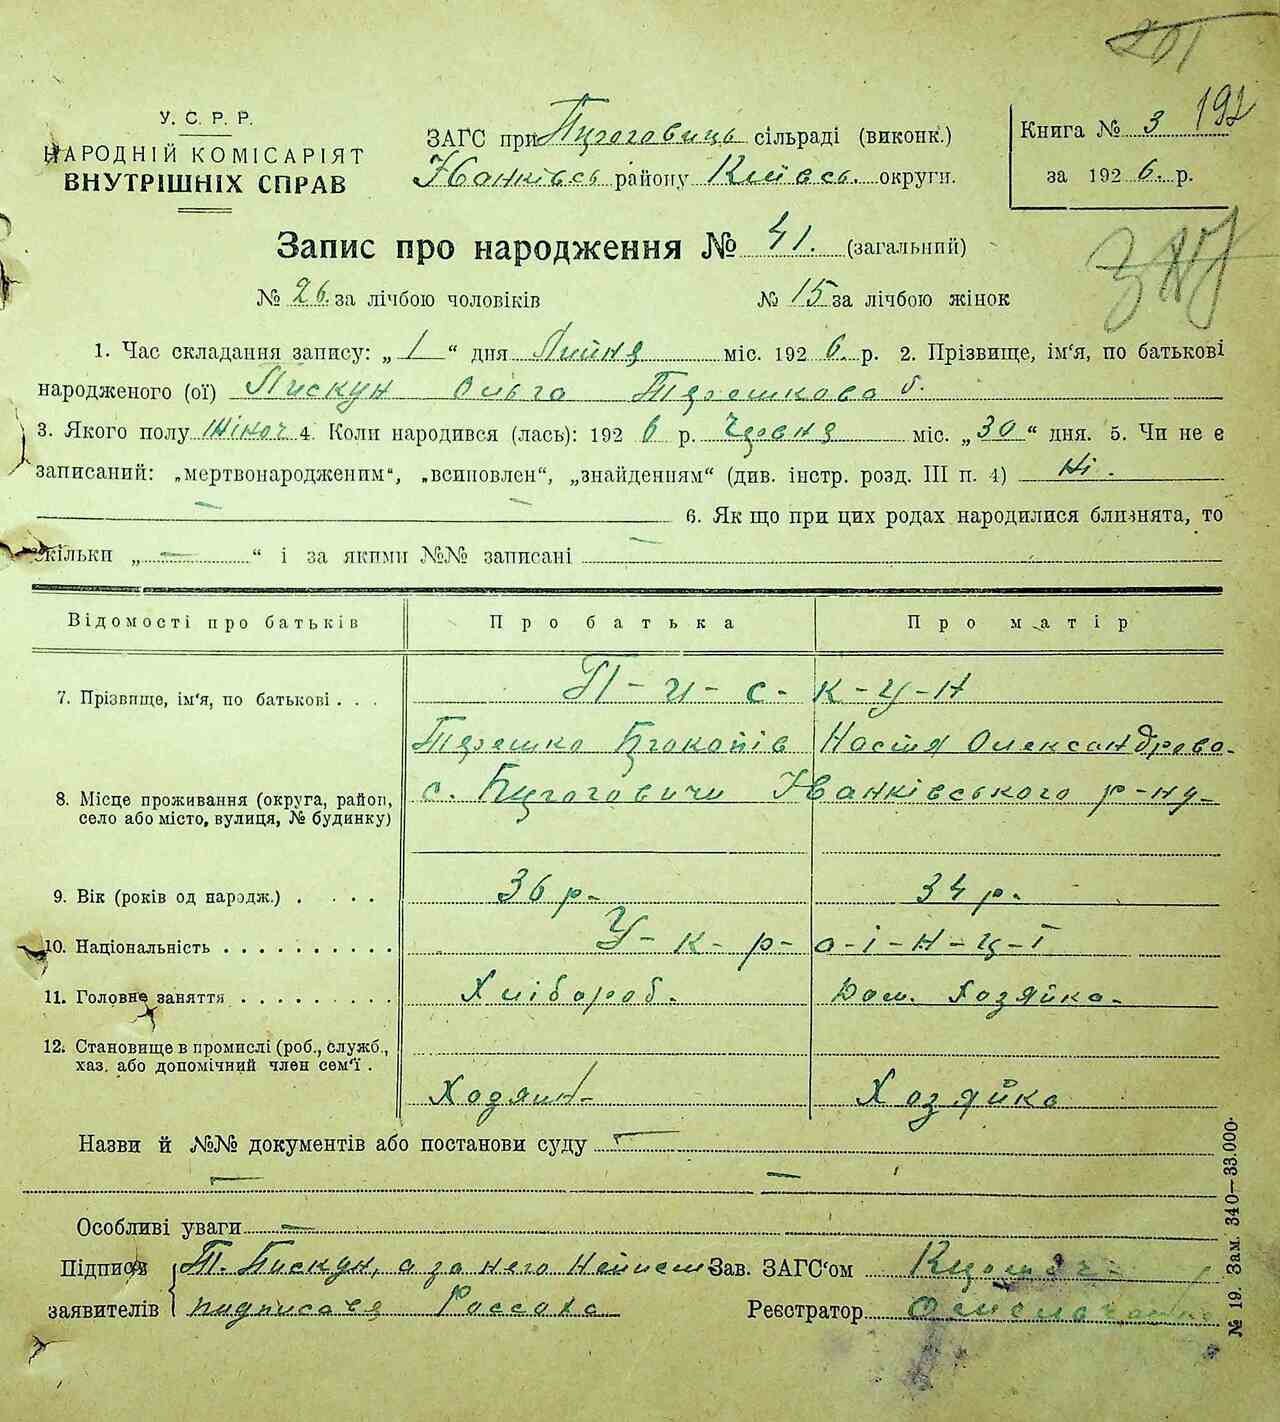 201
У. С. Р. Р.
НАРОДНІЙ КОМІСАРІЯТ
ВНУТРІШНІХ СПРАВ
ЗАГС при сільраді (виконк.)
Іванківсь району Київсь. округи.
Книга № 3 192
за 1926. р.
Запис про народження № 41. (загальний)
№ 26. за лічбою чоловіків № 15 за лічбою жінок
1. Час складання запису: „1“ дня Липня міс. 1926. р. 2. Прізвище, ім'я, по батькові
народженого (ої) Пискун Ольга Терешкова
3. Якого полу жіноч 4. Коли народився (лась): 1926 р. Червня міс. „30“ дня. 5. Чи не є
записаний: „мертвонародженим“, „всиновлен“, „знайденням“ (див. інстр. розд. III п. 4) Ні.
6. Як що при цих родах народилися близнята, то
скільки „ — “ і за якими №№ записані
Відомості про батьків Про батька Про матір
7. Прізвище, ім'я, по батькові . . . П-и-с-к-у-н
Терешко Прокопів Настя Олександрова-
8. Місце проживання (округа, район, с. Пироговичи Іванківського р-ну-
село або місто, вулиця, № будинку)
9. Вік (років од народж.) . . . . . 36 р- 34 р.
10. Національність . . . . . . . . . . У-к-р-а-ї-н-ц-ї
11. Головне заняття . . . . . . . . . Хлібороб. Дом. Хозяйка-
12. Становище в промислі (роб., служб.,
хаз. або допомічний член сем'ї . Хозяин- Хозяйка
Назви й №№ документів або постанови суду —
Особливі уваги —
Підписи Т. Пискун, а за него Зав. ЗАГС'ом
заявителів подписався Реєстратор
№ 19. Зам. 340—33.000.